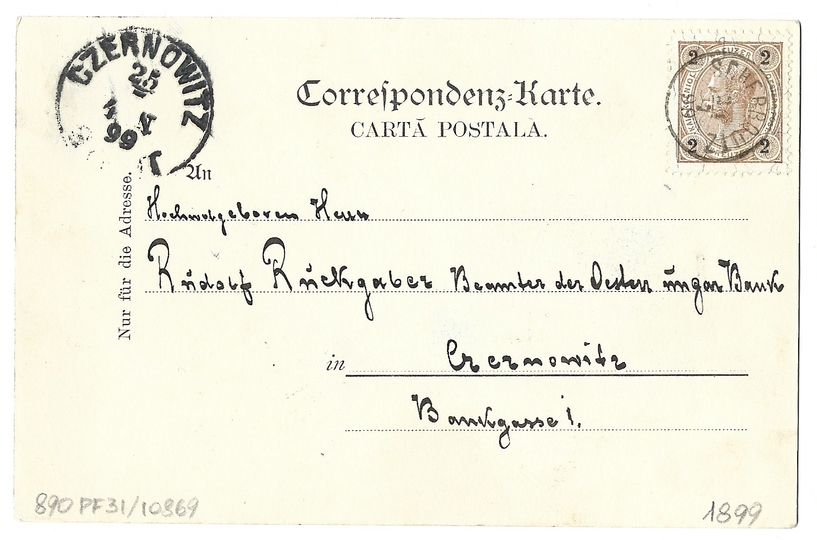 CZERNOWITZ
25
4
99
Correſpondenz-Karte.
CARTĂ POSTALĂ.
2 KREUZER 2
2 2
An
Nur für die Adresse.
Hochwolgeboren Herrn
Rudolf Rückgaber Beamter der Oesterr ungar Bank
in Czernowitz
Bankgasse 1.
890 PF31/10869
1899